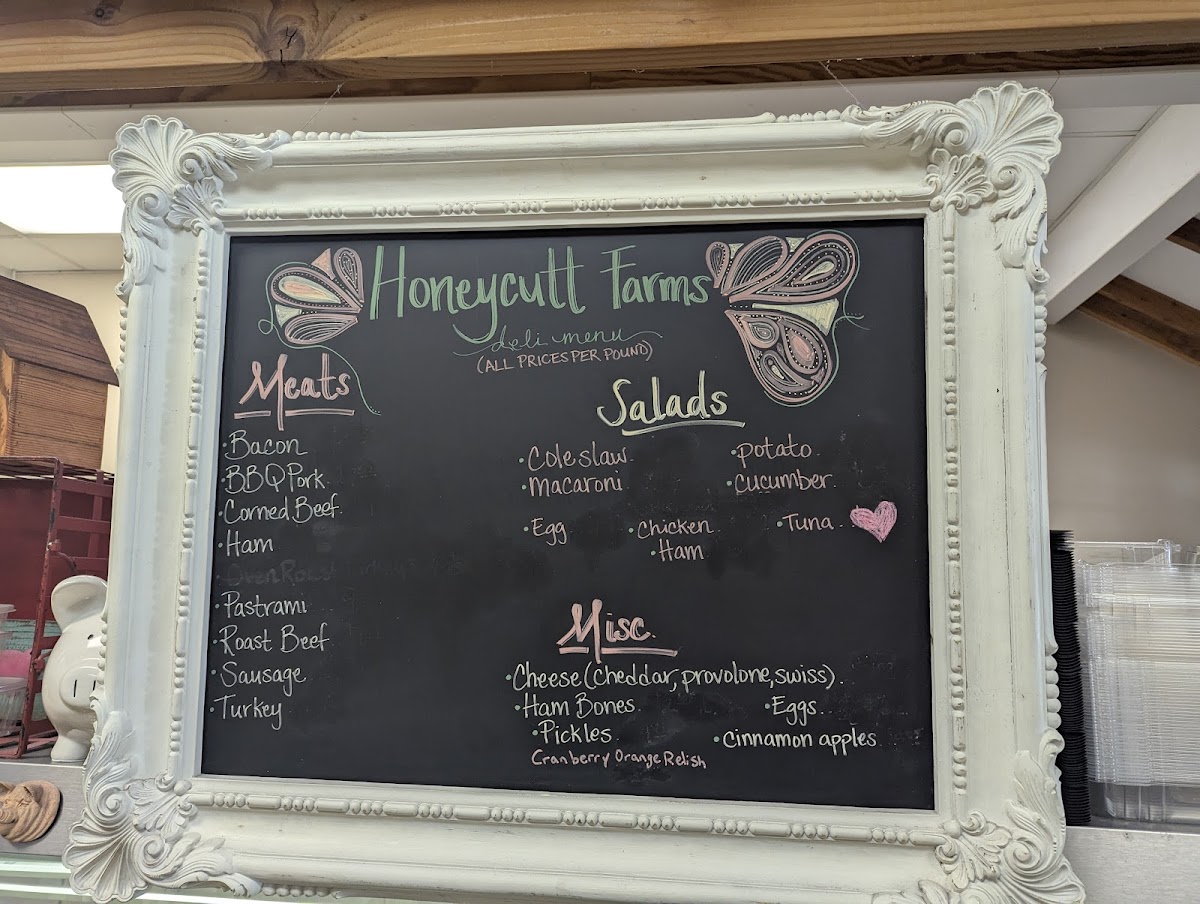 Honeycutt Farms
deli menu
(ALL PRICES PER POUND)
Meats
· Bacon
· BBQ Pork
· Corned Beef
· Ham
· Oven Roast Turkey
· Pastrami
· Roast Beef
· Sausage
· Turkey
Salads
· Coleslaw · potato
· Macaroni · cucumber
· Egg · Chicken · Tuna
· Ham
Misc.
· Cheese (cheddar, provolone, swiss)
· Ham Bones · Eggs
· Pickles · Cinnamon apples
Cranberry Orange Relish